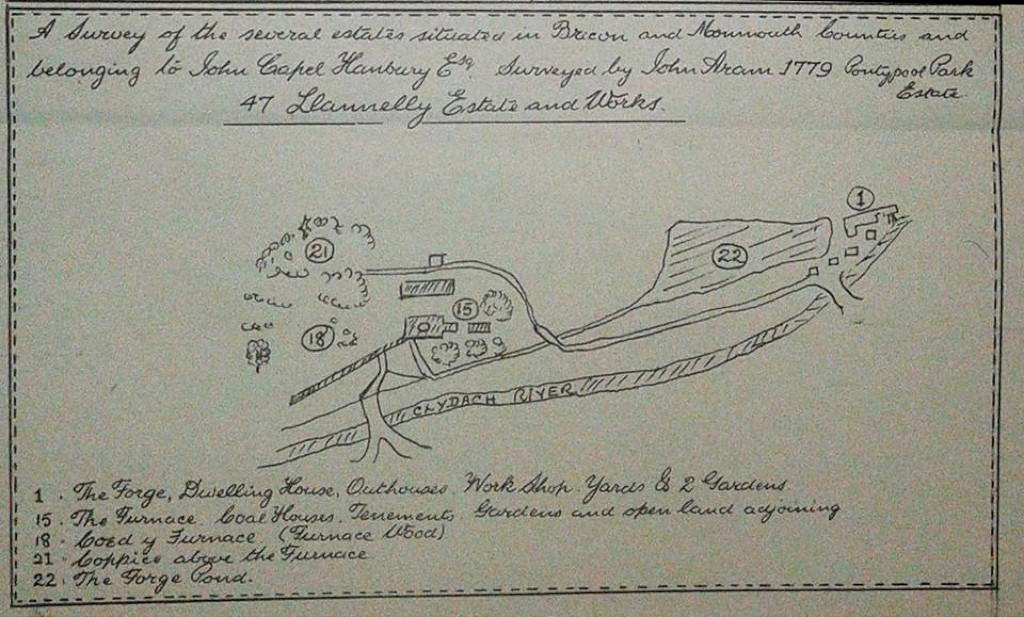 A Survey of the several estates situated in Brecon and Monmouth Counties and
belonging to John Capel Hanbury Esq. Surveyed by John Aram 1779 Pontypool Park
Estate
47 Llannelly Estate and Works.
1
21
22
15
18
CLYDACH RIVER
1 . The Forge, Dwelling House, Outhouses. Work Shop. Yards & 2 Gardens.
15 . The Furnace. Coal Houses. Tenements. Gardens and open land adjoining
18 . Coed y Furnace (Furnace Wood)
21 . Coppice above the Furnace
22 . The Forge Pond.